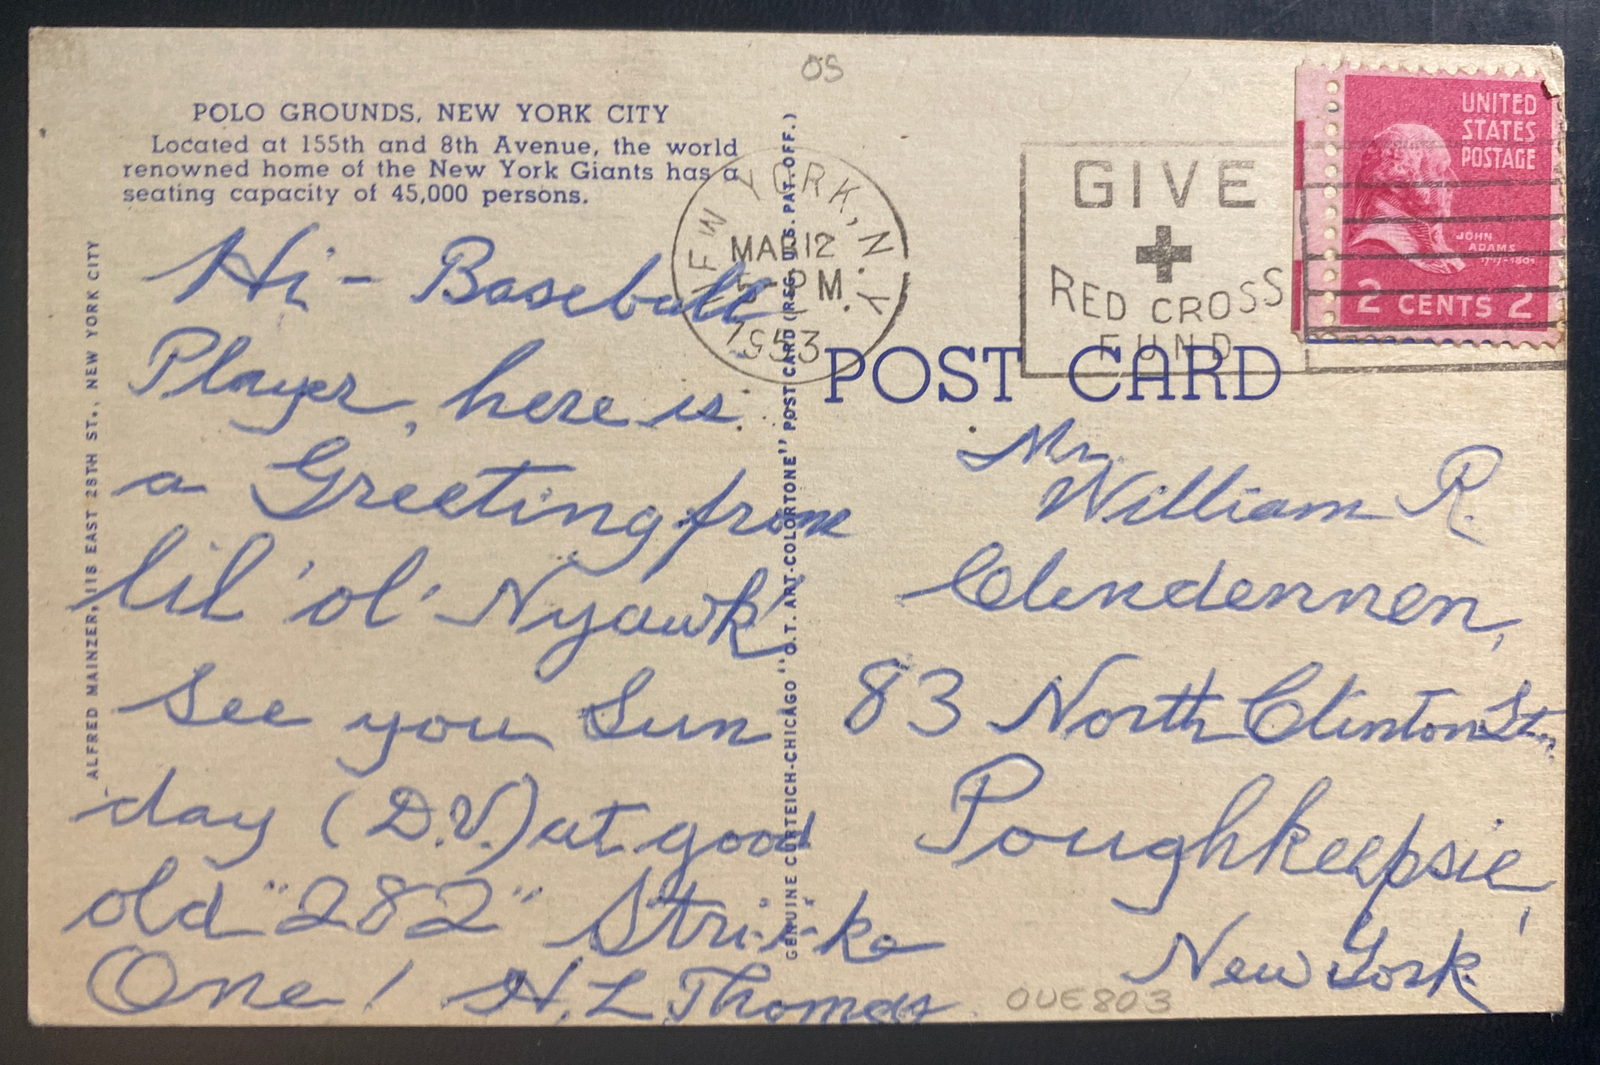 OS
POLO GROUNDS, NEW YORK CITY
Located at 155th and 8th Avenue, the world
renowned home of the New York Giants has a
seating capacity of 45,000 persons.
Hi - Baseball
Player, here is
a Greeting from
lil 'ol' Nyawk
See you Sun
day (D.V.) at good
old "282" Stri-i-ke
One! H. L. Thomas
ALFRED MAINZER, 118 EAST 28TH ST., NEW YORK CITY
GENUINE CURTEICH-CHICAGO "C.T. ART-COLORTONE" POST CARD (REG. U.S. PAT. OFF.)
NEW YORK, N.Y.
MAR 12
PM
1953
GIVE
RED CROSS
FUND
UNITED
STATES
POSTAGE
JOHN
ADAMS
1797-1801
2 CENTS 2
POST CARD
Mr.
William R.
Clendennen,
83 North Clinton St.,
Poughkeepsie,
New York
OUE803